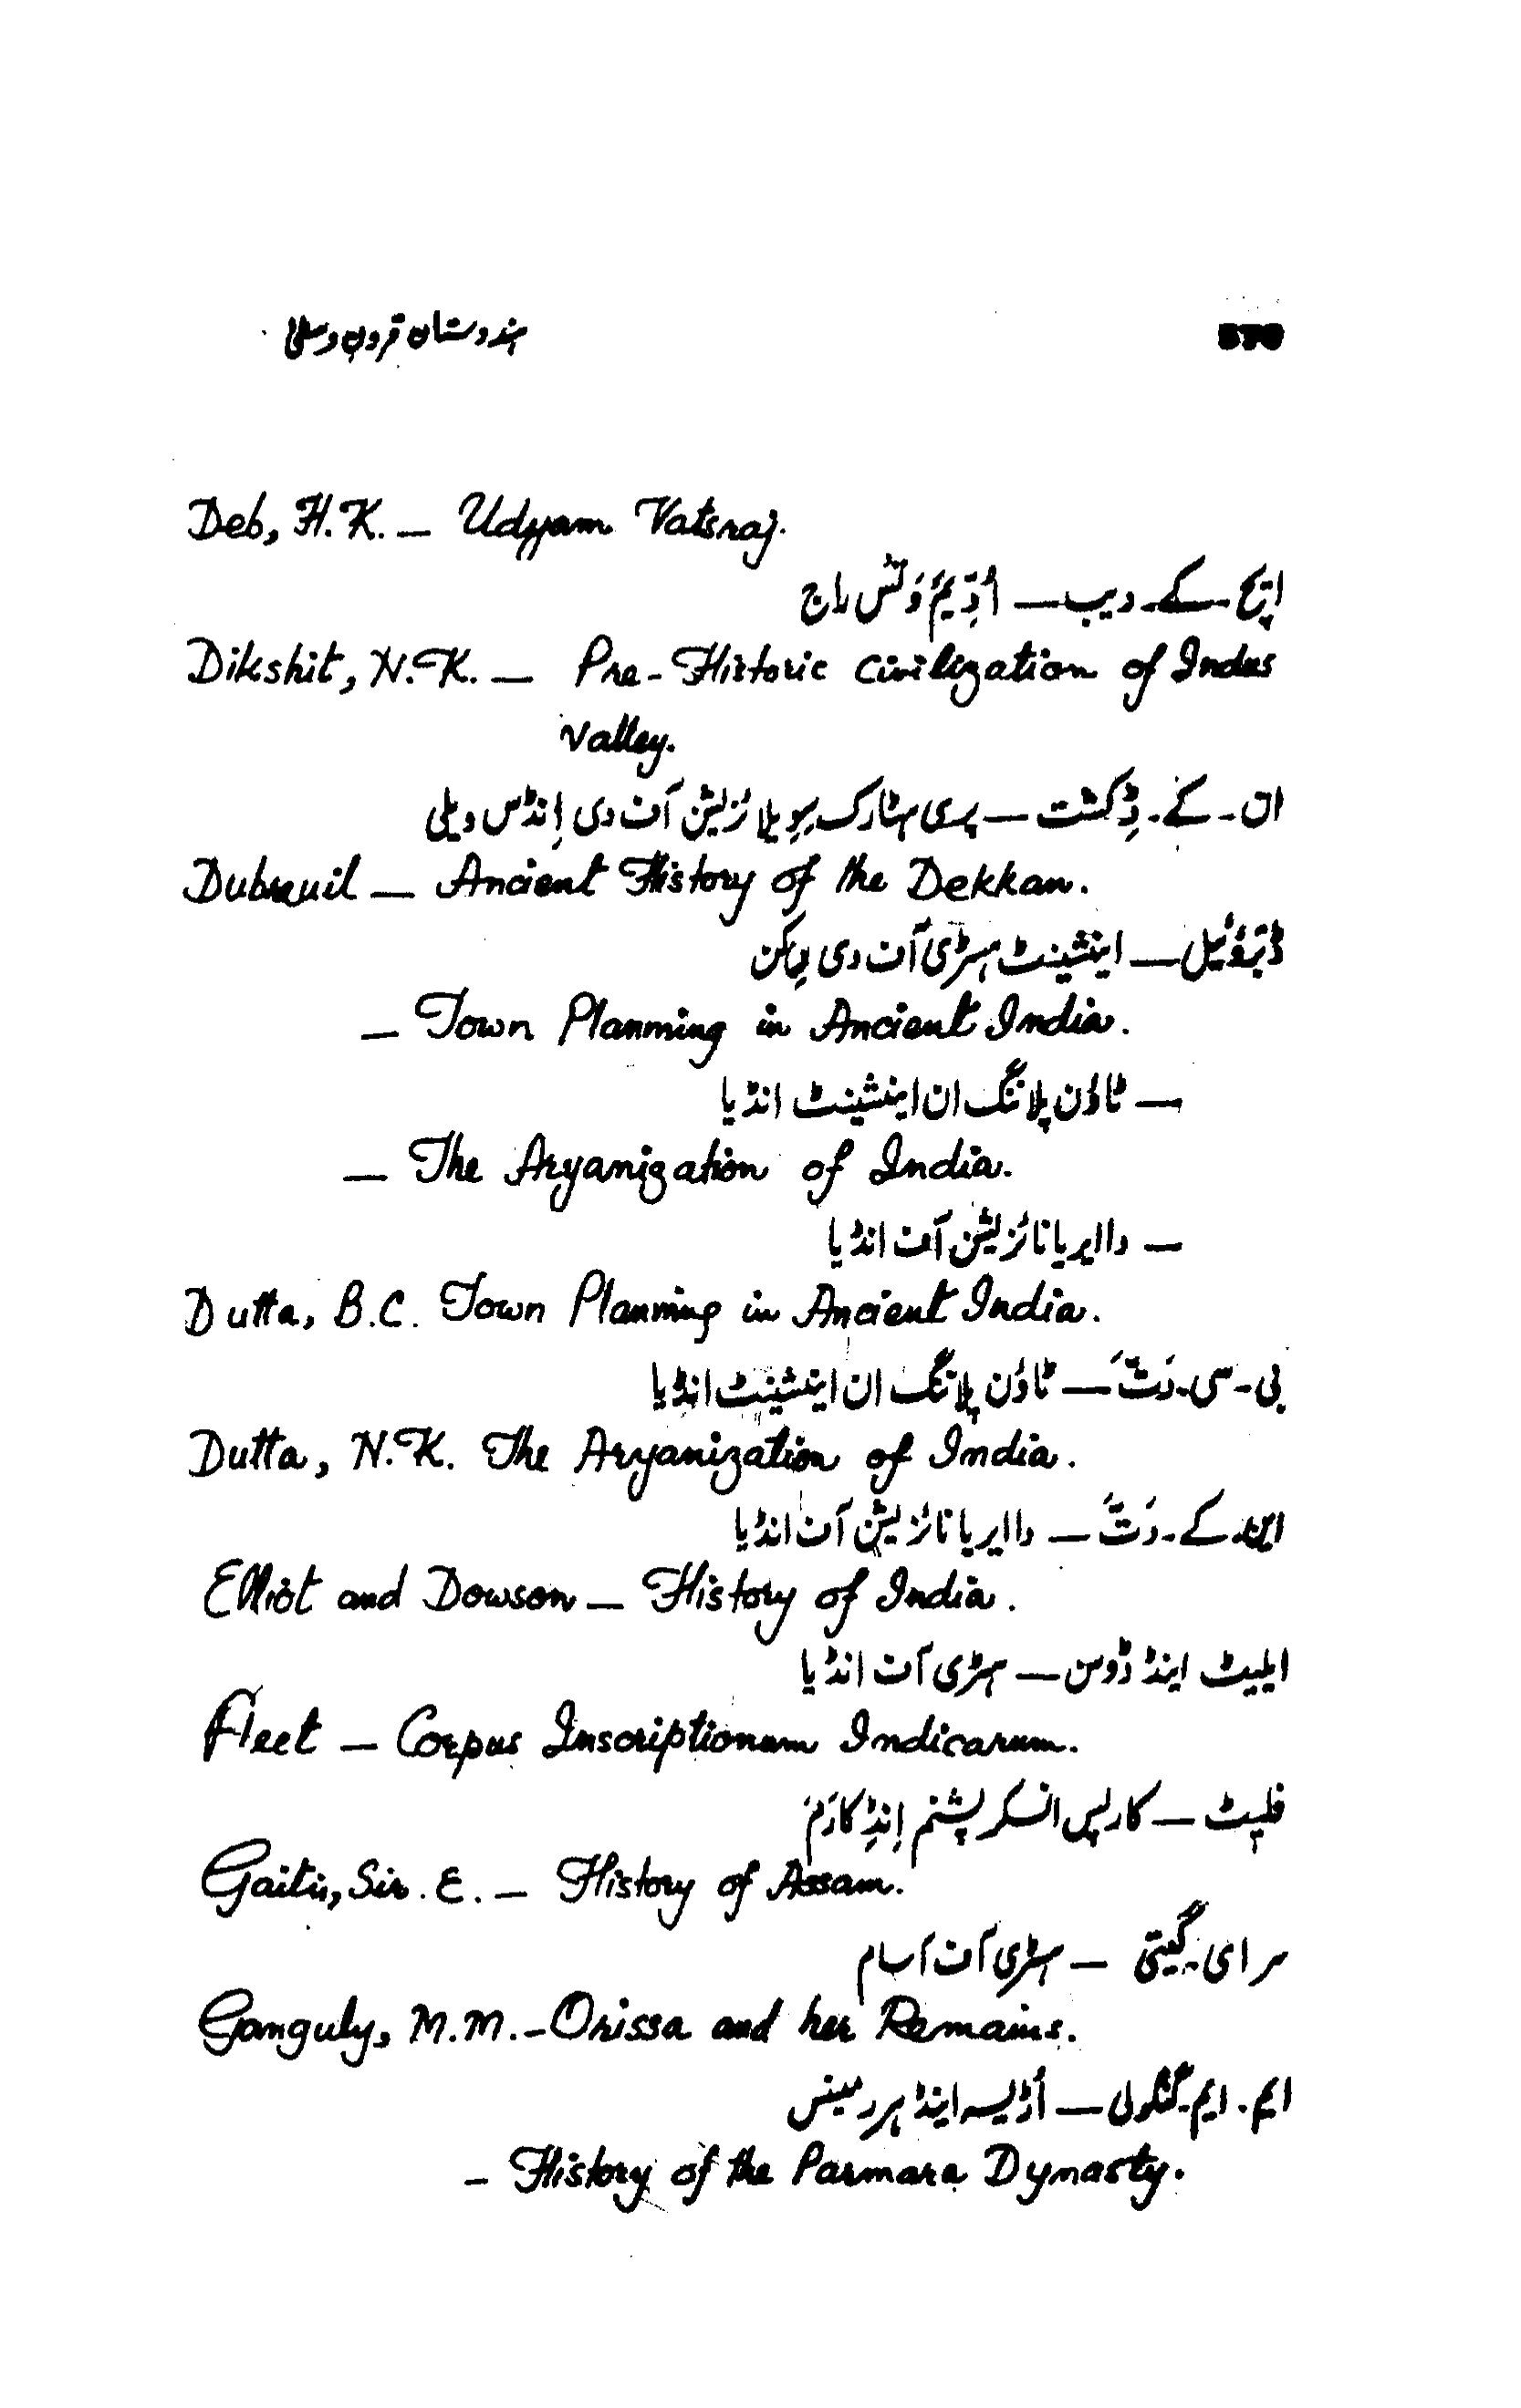 ہندوستان قرون وسطیٰ
570
Deb, H.K. — Udyam Vatsraj.
ایچ - کے - دیب — اُدِّیَم وَتْس راج
Dikshit, N.K. — Pre-Historic Civilization of Indus
Valley.
ان - کے - ڈِکشت — پری ہسٹارک سویلائزیشن آف دی اِنڈس ویلی
Dubreuil — Ancient History of the Dekkan.
ڈبروئیل — اینشینٹ ہسٹری آف دی دکن
— Town Planming in Ancient India.
— ٹاؤن پلاننگ ان اینشینٹ انڈیا
— The Aryanization of India.
— دا ایریانائزیشن آف انڈیا
Dutta, B.C. Town Planning in Ancient India.
بی - سی - دَتّ — ٹاؤن پلاننگ ان اینشینٹ انڈیا
Dutta, N.K. The Aryanization of India.
این - کے - دَتّ — دا ایریانائزیشن آف انڈیا
Elliot and Dowson — History of India.
ایلیٹ اینڈ ڈوسن — ہسٹری آف انڈیا
Fleet — Corpus Inscriptionum Indicarum.
فلیٹ — کارپس انسکرپشنم اِنڈِکارَم
Gaitii, Sir. E. — History of Assam.
سر ای - گیتی — ہسٹری آف آسام
Ganguly, M.M. - Orissa and her Remains.
ایم - ایم - گنگولی — اُڑیسہ اینڈ ہر رمینس
- History of the Parmara Dynasty.